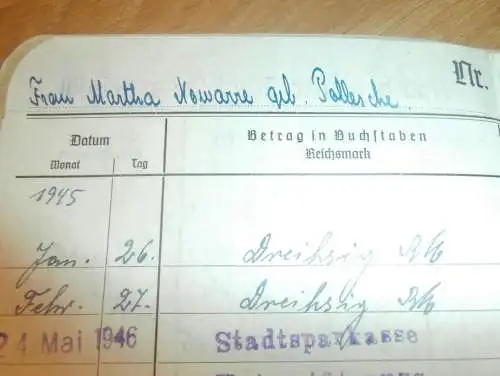 Nr.
Frau Martha Nowarre geb. Pollesche.
Datum
Betrag in Buchstaben
Monat Tag
Reichsmark
1945
Jan. 26. Dreißig RM
Febr. 27. Dreißig RM
24 Mai 1946 Stadtsparkasse